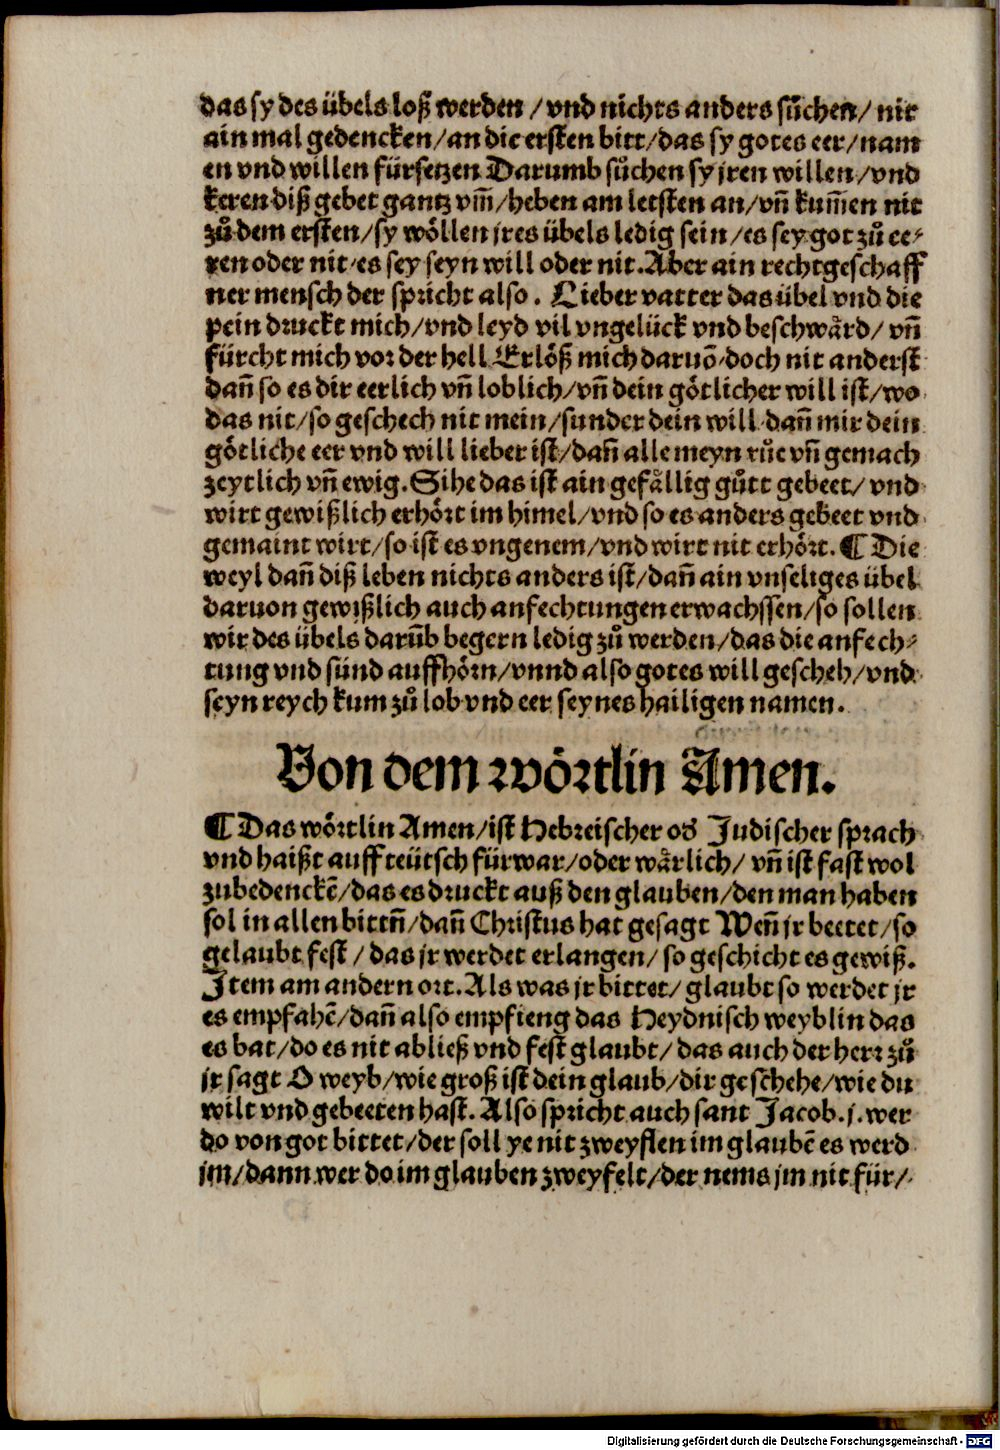 das sy des übels loß werden / vnd nichts anders sůchen / nit
ain mal gedencken / an die ersten bitt / das sy gotes eer / nam
en vnd willen fürsetzen Darumb sůchen sy jren willen / vnd
keren diß gebet gantz vm̃ / heben am letsten an / vn̄ kum̄en nit
zů dem ersten / sy wöllen jres übels ledig sein / es sey got zů ee⸗
ren oder nit / es sey seyn will oder nit. Aber ain rechtgeschaff
ner mensch der spricht also. Lieber vatter das übel vnd die
pein druckt mich / vnd leyd vil vngelück vnd beschwärd / vn̄
fürcht mich vor der hell Erlöß mich daruō / doch nit anderst
dan̄ so es dir eerlich vn̄ loblich / vn̄ dein götlicher will ist / wo
das nit / so geschech nit mein / sunder dein will / dan̄ mir dein
götliche eer vnd will lieber ist / dan̄ alle meyn růe vn̄ gemach
zeytlich vn̄ ewig. Sihe das ist ain gefällig gůtt gebeet / vnd
wirt gewißlich erhört im himel / vnd so es anders gebeet vnd
gemaint wirt / so ist es vngenem / vnd wirt nit erhört. ¶ Die
weyl dan̄ diß leben nichts anders ist / dan̄ ain vnseliges übel
daruon gewißlich auch anfechtungen erwachssen / so sollen
wir des übels darūb begern ledig zů werden / das die anfech⸗
tung vnd sünd auffhörn / vnnd also gotes will gescheh / vnd
seyn reych kum zů lob vnd eer seynes hailigen namen.
Von dem wörtlin Amen.
¶ Das wörtlin Amen / ist Hebreischer od̕ Judischer sprach
vnd haißt auff teütsch fürwar / oder wärlich / vn̄ ist fast wol
zubedenckē / das es druckt auß den glauben / den man haben
sol in allen bittn̄ / dan̄ Christus hat gesagt Wen̄ jr beetet / so
gelaubt fest / das jr werdet erlangen / so geschicht es gewiß.
Item am andern ort. Als was jr bittet / glaubt so werdet jr
es empfahē / dan̄ also empfieng das Heydnisch weyblin das
es bat / do es nit abließ vnd fest glaubt / das auch der herr zů
jr sagt O weyb / wie groß ist dein glaub / dir geschehe / wie du
wilt vnd gebeeten hast. Also spricht auch sant Jacob. j. wer
do von got bittet / der soll ye nit zweyflen im glaubē es werd
jm / dann wer do im glauben zweyfelt / der nems jm nit für /
Digitalisierung gefördert durch die Deutsche Forschungsgemeinschaft - DFG